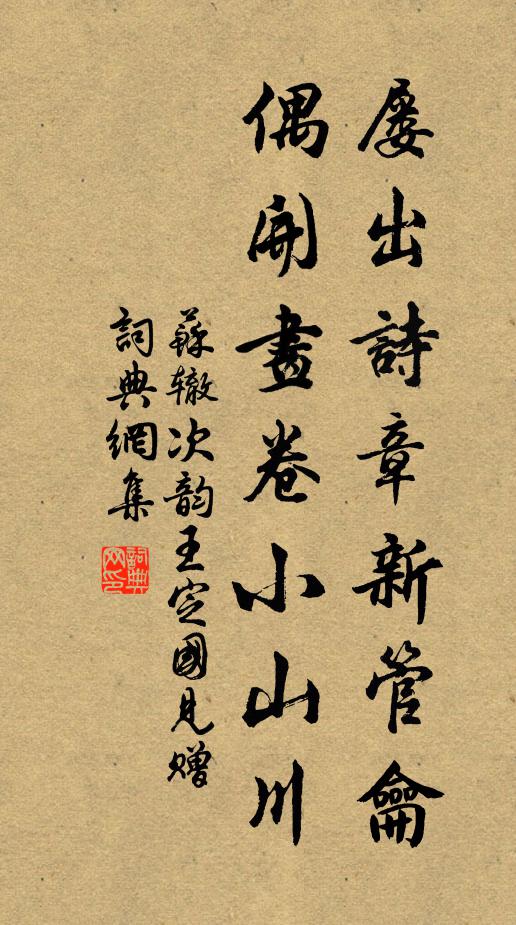 屢出詩章新管龠
偶開畫卷小山川
蘇轍次韵王定國見贈
詞典網集
詞典网印